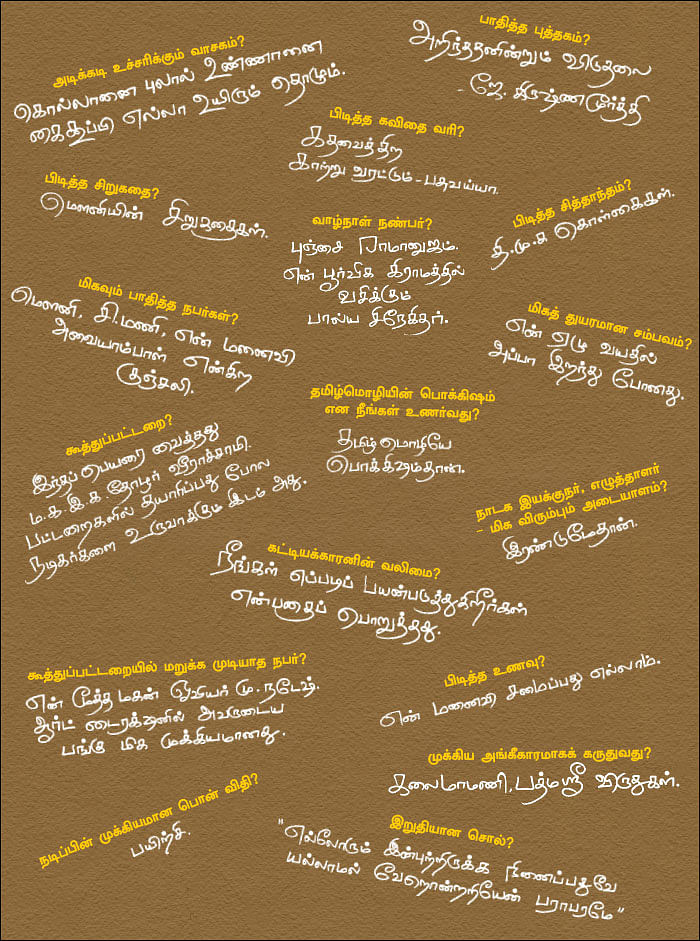 அடிக்கடி உச்சரிக்கும் வாசகம்?
கொல்லானை புலால் உண்ணானை
கைகூப்பி எல்லா உயிரும் தொழும்.
பாதித்த புத்தகம்?
அறிந்ததனின்றும் விடுதலை
- ஜே. கிருஷ்ணமூர்த்தி
பிடித்த கவிதை வரி?
கதவைத்திற
காற்று வரட்டும் - பசுவய்யா.
பிடித்த சிறுகதை?
மௌனியின் சிறுகதைகள்.
வாழ்நாள் நண்பர்?
புஞ்சை ராமானுஜம்.
என் பூர்விக கிராமத்தில்
வசிக்கும்
பால்ய சிநேகிதர்.
பிடித்த சித்தாந்தம்?
தி.மு.க கொள்கைகள்.
மிகவும் பாதித்த நபர்கள்?
மௌனி, சி.மணி, என் மனைவி
அவையாம்பாள் என்கிற
குஞ்சலி.
மிகத் துயரமான சம்பவம்?
என் ஏழு வயதில்
அப்பா இறந்து போனது.
தமிழ்மொழியின் பொக்கிஷம்
என நீங்கள் உணர்வது?
தமிழ் மொழியே
பொக்கிஷம்தான்.
கூத்துப்பட்டறை?
இந்தப் பெயரை வைத்தது
ம.க.இ.க. தோழர் வீராச்சாமி.
பட்டறைகளில் தயாரிப்பது போல
நடிகர்களை உருவாக்கும் இடம் அது.
நாடக இயக்குநர், எழுத்தாளர்
- மிக விரும்பும் அடையாளம்?
இரண்டுமேதான்.
கட்டியக்காரனின் வலிமை?
நீங்கள் எப்படிப் பயன்படுத்துகிறீர்கள்
என்பதைப் பொறுத்தது.
கூத்துப்பட்டறையில் மறுக்க முடியாத நபர்?
என் மூத்த மகன் ஓவியர் மு. நடேஷ்.
ஆர்ட் டைரக்‌ஷனில் அவருடைய
பங்கு மிக முக்கியமானது.
பிடித்த உணவு?
என் மனைவி சமைப்பது எல்லாம்.
முக்கிய அங்கீகாரமாகக் கருதுவது?
கலைமாமணி, பத்மஸ்ரீ விருதுகள்.
நடிப்பின் முக்கியமான பொன் விதி?
பயிற்சி.
இறுதியான சொல்?
"எல்லோரும் இன்புற்றிருக்க நினைப்பதுவே
யல்லாமல் வேறொன்றறியேன் பராபரமே"